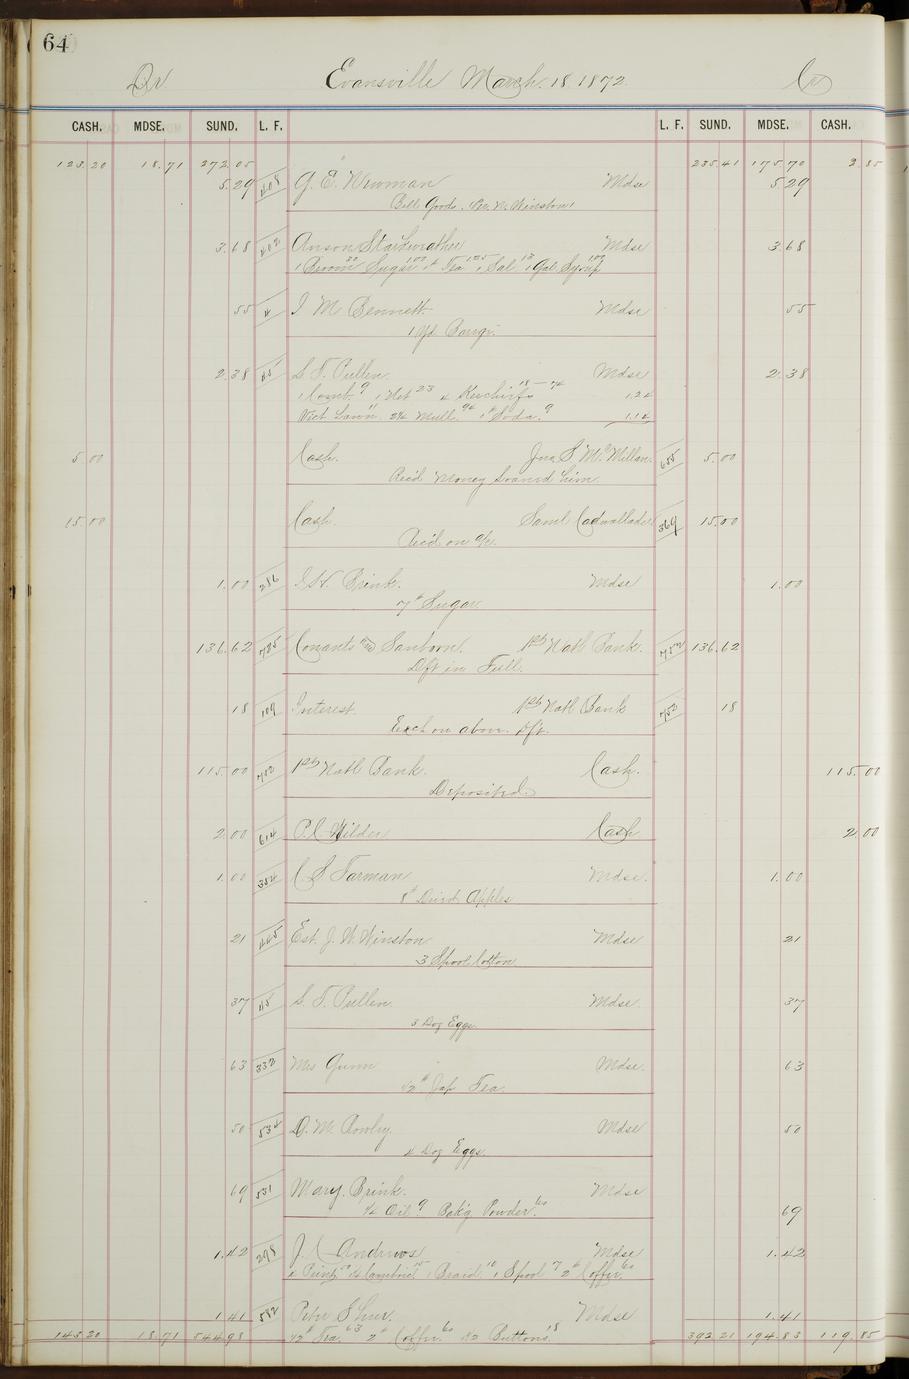 64
Dr Evansville March 18 1872 Cr
CASH. MDSE. SUND. L. F. L. F. SUND. MDSE. CASH.
123.20 18.71 272.05 235.41 175.70 2.85
5.29 408 G. E. Newman Mdse 5.29
Bill Goods. (Per. N. Winston)
3.68 402 Anson Mdse 3.68
1 Broom 30 Sugar 100 1# Tea 125 1 Sal 13 1 Gal Syrup 100
55 4 I M Bennett Mdse 55
1 Yd
2.38 45 S. T. Pullen. Mdse 2.38
1 Comb 9 1 Net 23 4 Kerchifs 18 - 74 1.24
Vict Lawn 2 1/4 Mull 94 1# Soda 9 1.14
5.00 Cash. Jna S. McMillan. 655 5.00
Rec'd Money loaned him.
15.00 Cash. Saml Cadwallader 369 15.00
Rec'd on a/c.
1.00 286 Brink. Mdse 1.00
7# Sugar.
136.62 785 Conants and Sanborn. 1st Natl Bank. 752 136.62
Dft in Full.
18 109 Interest. 1st Natl Bank 752 18
Exch on above. Dft.
115.00 752 1st Natl Bank. Cash. 115.00
Deposited.
2.00 614 P. C. Wilder Cash 2.00
1.00 354 C S Farman Mdse. 1.00
8# Dried Apples
21 445 Est. J. W. Winston Mdse 21
3 Spool Cotton
37 45 S. T. Pullen. Mdse. 37
3 Doz Eggs.
63 332 Mrs Gunn Mdse. 63
1/2# Jap Tea.
50 534 D. M. Rowley Mdse 50
4 Doz Eggs.
69 531 Mary. Brink. Mdse
1/4 Oil 9 Bak'g Powder. 60 69
1.42 298 J. C Andrews Mdse 1.42
Braid. 10 1 Spool 7 2# Coffee. 60
1.41 582 Peter Mdse 1.41
143.20 18.71 544.98 1/2# Tea. 63 2# Coffee. 60 12 Buttons. 18 392.21 194.83 119.85